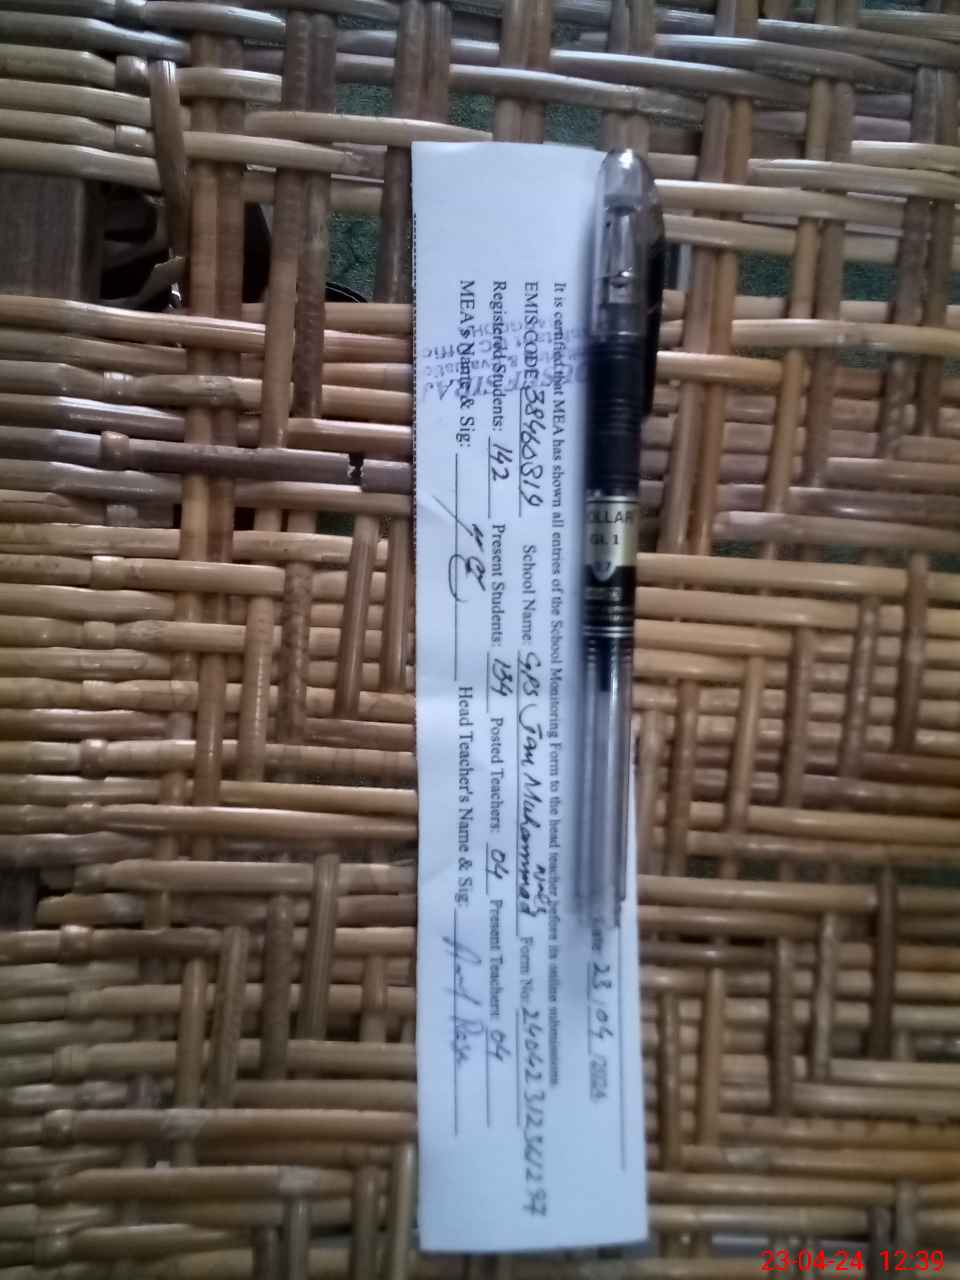 Date 23/04/2024
It is certified that MEA has shown all entries of the School Monitoring Form to the head teacher before its online submission.
EMIS CODE: 38460819 School Name: GPS Jan Muhammad Form No: 2404231236129
Registered Students: 142 Present Students: 134 Posted Teachers: 04 Present Teachers: 04
MEA's Name & Sig: Head Teacher's Name & Sig:
OLLAR
GL 1
23-04-24 12:39